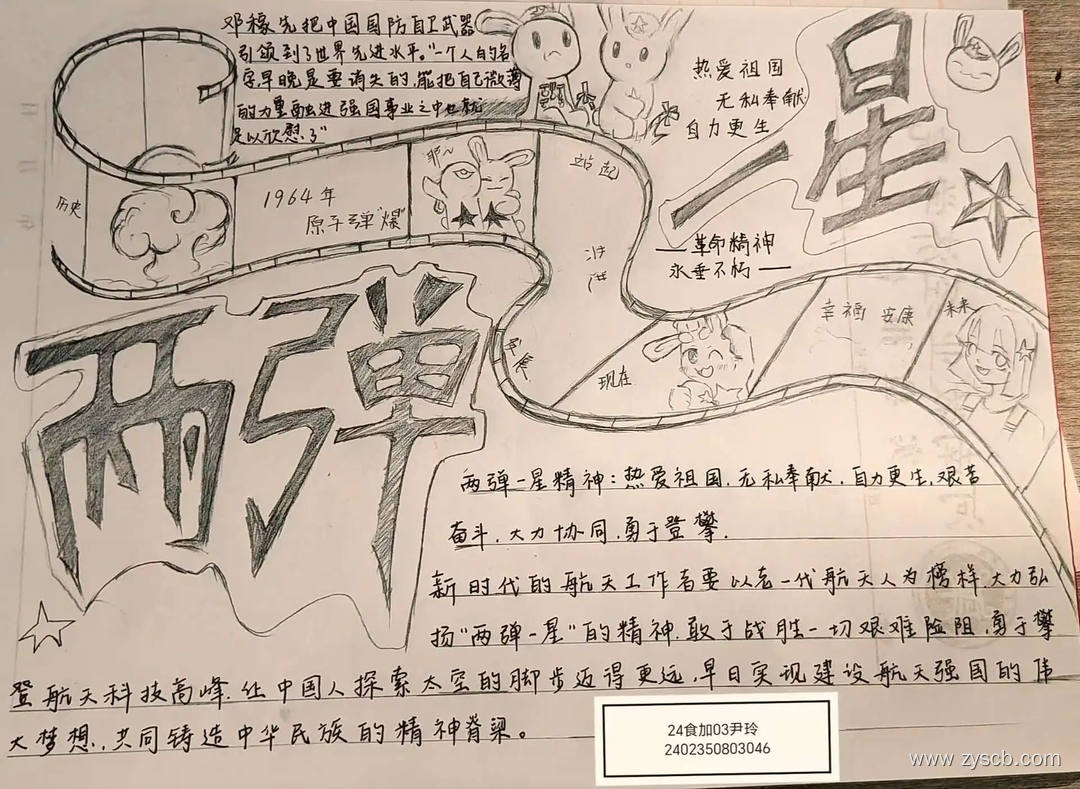 邓稼先把中国国防自卫武器
引领到了世界先进水平."一个人的名
字,早晚是要消失的,能把自己微薄
的力量融进强国事业之中也就
足以欣慰了"
热爱祖国
无私奉献
自力更生
一星
历史
1964年
原子弹"爆"
耶~
站起
——革命精神
永垂不朽——
两弹
发展
现在
幸福 安康
未来
两弹一星精神:热爱祖国,无私奉献,自力更生,艰苦
奋斗,大力协同,勇于登攀.
新时代的航天工作者要以老一代航天人为榜样,大力弘
扬"两弹一星"的精神.敢于战胜一切艰难险阻,勇于攀
登航天科技高峰.让中国人探索太空的脚步迈得更远,早日实现建设航天强国的伟
大梦想,共同铸造中华民族的精神脊梁。
24食加03尹玲
2402350803046
www.zyscb.com